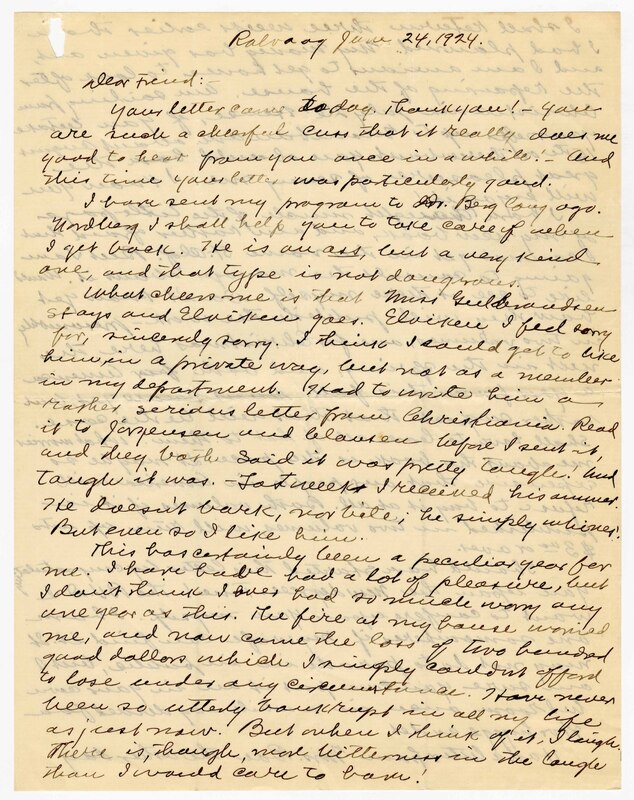 Rolvaag June 24, 1924.
Dear Friend:-
Your letter came today. Thank you! - You
are such a cheerful cuss that it really does me
good to hear from you once in a while! - And
this time your letter was particularly good.
I have sent my program to Dr. Berg long ago.
Nordberg I shall help you to take care of when
I get back. He is an ass, but a very kind
one, and that type is not dangerous.
What cheers me is that Miss Gulbrandsen
stays and Elviken goes. Elviken I feel sorry
for, sincerely sorry. I think I could get to like
him in a private way, but not as a member
in my department. Had to write him a
rather serious letter from Christiania. Read
it to Jörgensen and Clausen before I sent it,
and they both said it was pretty tough! And
tough it was. - Last week I received his answer.
He doesn't bark, nor bite; he simply whines!
But even so I like him.
This has certainly been a peculiar year for
me. I have had a lot of pleasure, but
I don't think I ever had so much worry any
one year as this. The fire at my house worried
me, and now came the loss of two hundred
good dollars which I simply couldn't afford
to lose under any circumstance. Have never
been so utterly bankrupt in all my life
as just now. But when I think of it, I laugh.
There is, though, more bitterness in the laugh
than I would care to have!